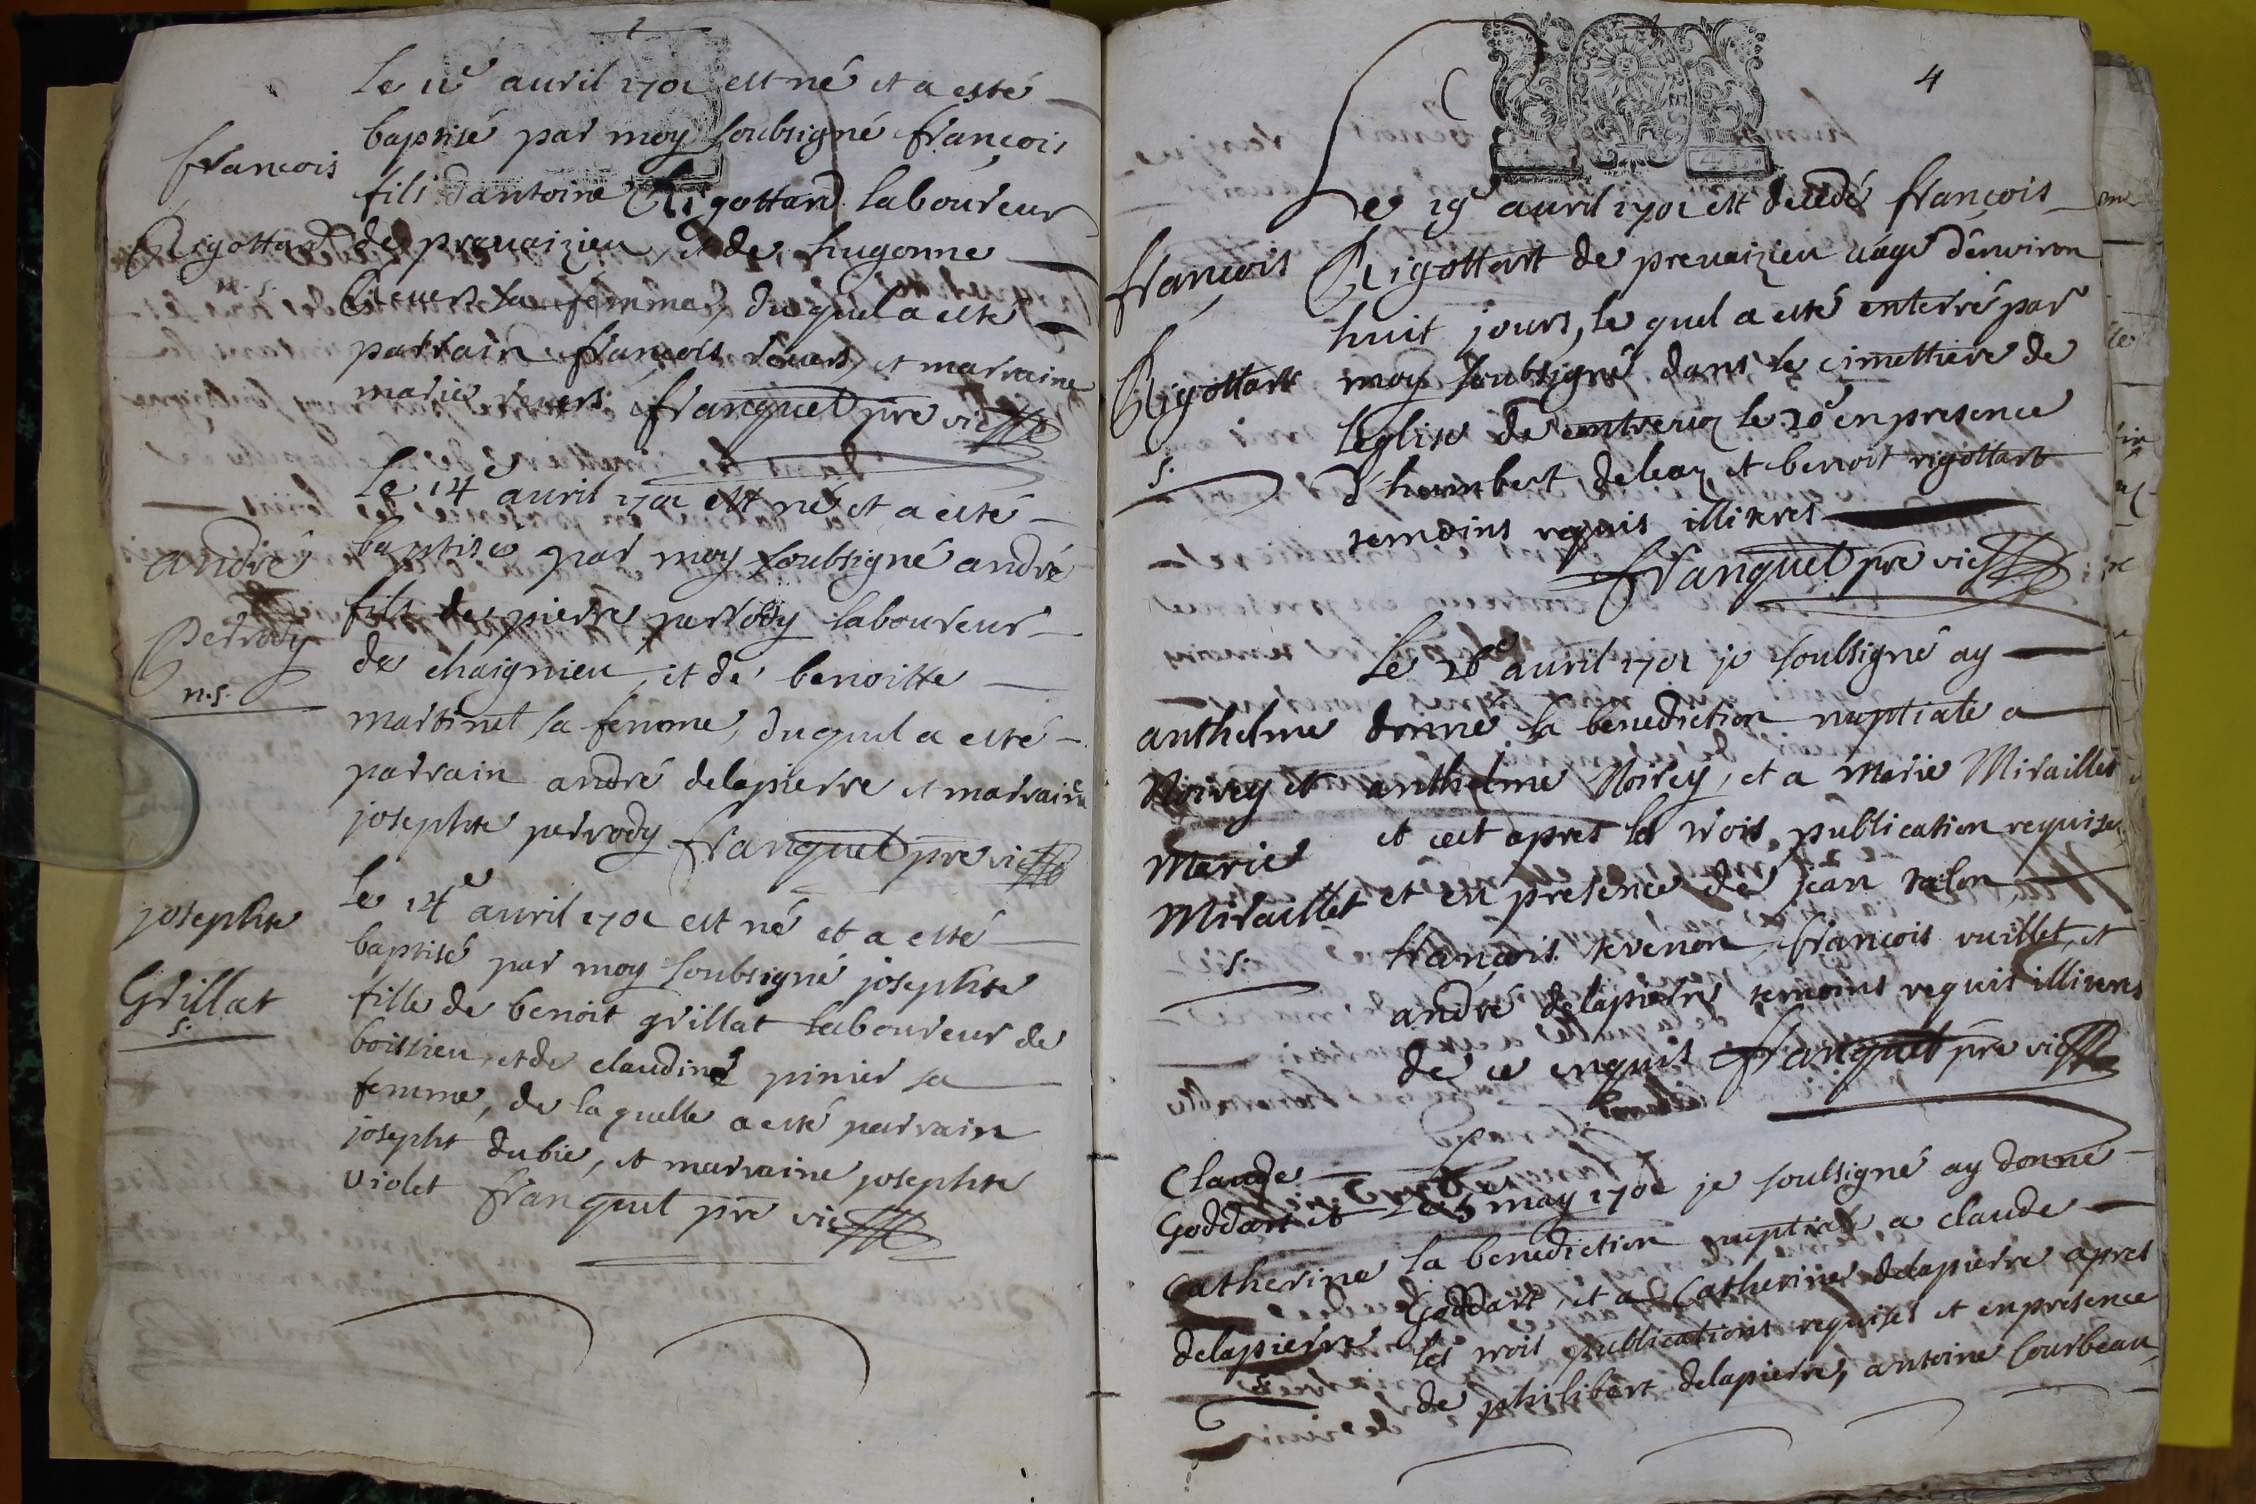 Le 11e auril 1701 est né et a esté
baptisé par moy soubsigné françois
françois
fils dantoine Rigottard laboureur
Rigottard
de preuaizieu, et de hugonne
reuers sa femme, duquel a esté
parrain françois reuers, et marraine
marie reuers franquet pre vic
Le 14e auril 1701 est né et a esté
baptisé par moy soubsigné andré
andré
fils de pierre perrody laboureur
Perrody
de chaignieu, et de benoitte
n.s.
martinet sa femme, duquel a esté
parrain andré delapierre et marraine
josephte perrody franquet pre vic
le 14e auril 1701 est né et a esté
josephte
baptisé par moy soubsigné josephte
Grillat
fille de benoit grillat laboureur de
s.
boissieu, et de claudine pinier sa
femme, de laquelle a esté parrain
josepht dubie, et marraine josephte
violet franquet pre vic
4
Le 19e auril 1701 est decedé françois
françois
Rigottart de preuaizieu aagé denuiron
huit jours, le quel a esté enterré par
Rigottart
moy soubsigné dans le cimettiere de
leglise de le 20e en presence
s.
d'humbert et benoit rigottart
temoins requis illiteres
franquet pre vic
Le 26e auril 1701 je soubsigné ay
anthelme
donné la benediction nuptiale a
Noirey et
anthelme Noirey, et a Marie Miraillet
Marie
et cest apres les trois publication requises
Miraillet
et en presence de jean talon,
s.
françois tevenon, françois vuillet, et
andré delapierre temoins requis illiteres
de ce enquis franquet pre vic
Claude
Le 3e may 1701 je soubsigné ay donné
Goddart et
la benediction nuptiale a claude
Catherine
Goddart, et a Catherine delapierre apres
delapierre
les trois publications requises et en presence
de philibert delapierre, antoine Courbeau,